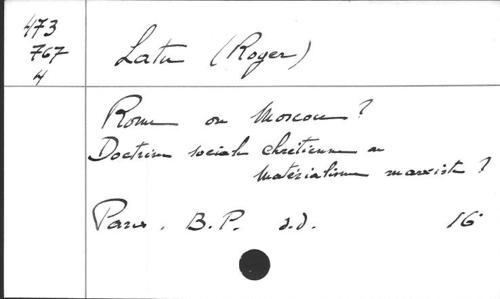 473
767
4
Latu (Roger)
Rome ou Moscou ?
Doctrine sociale chrétienne ou
Matérialisme marxiste ?
Paris. B.P. s.d. 16°